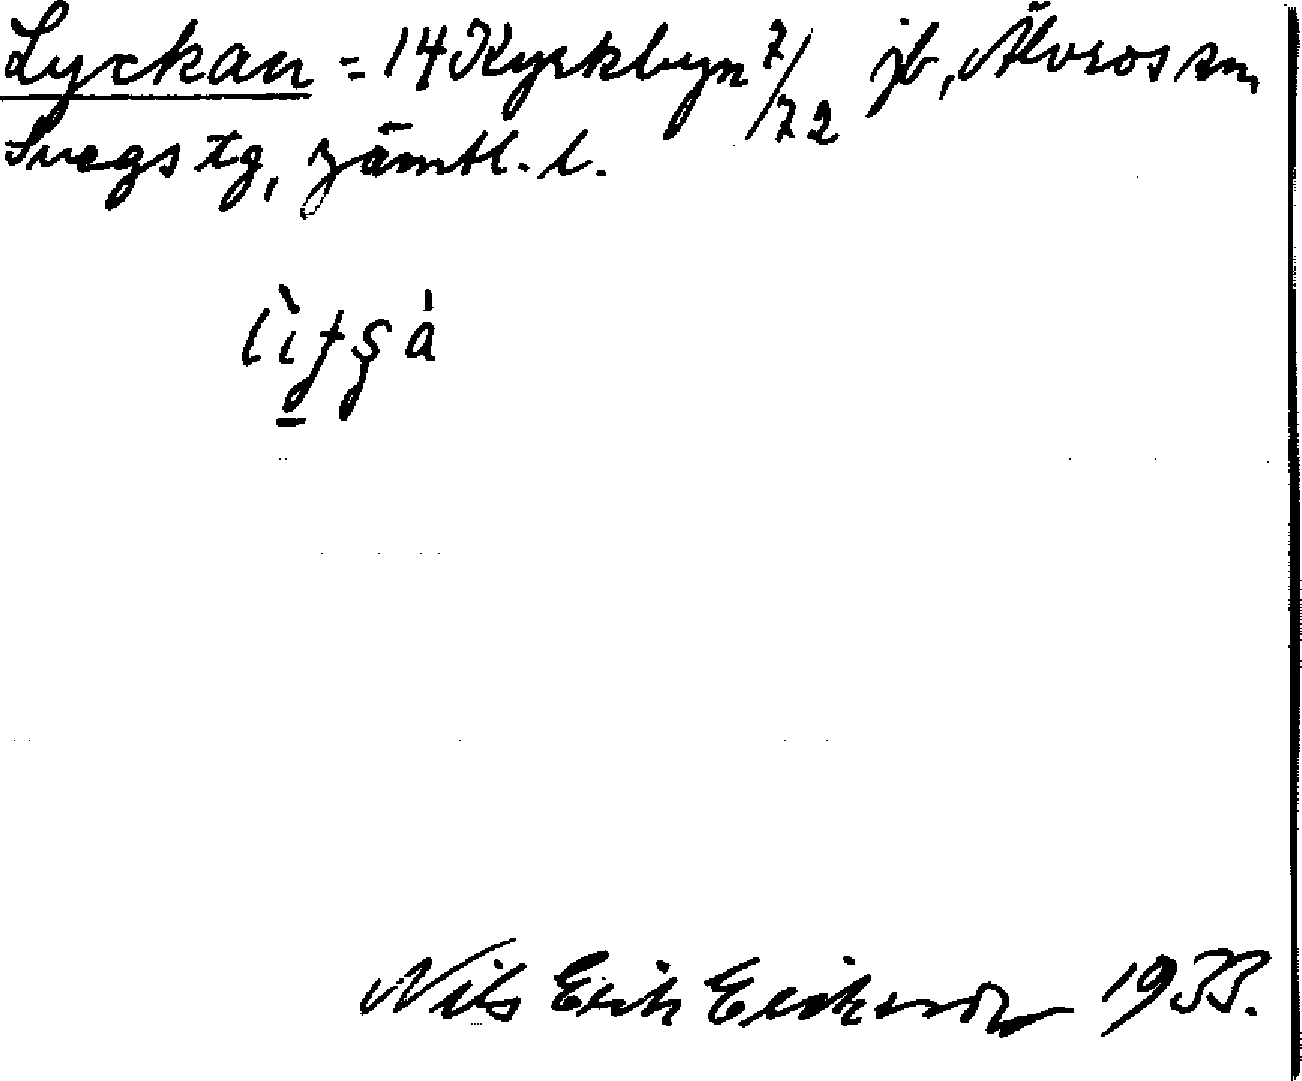 Lyckan = 14 Kyrkbyn 7/72 jb, Älvros sn,
Svegs tg, Jämtl. l.
Nils Erik Eriksson 1933.